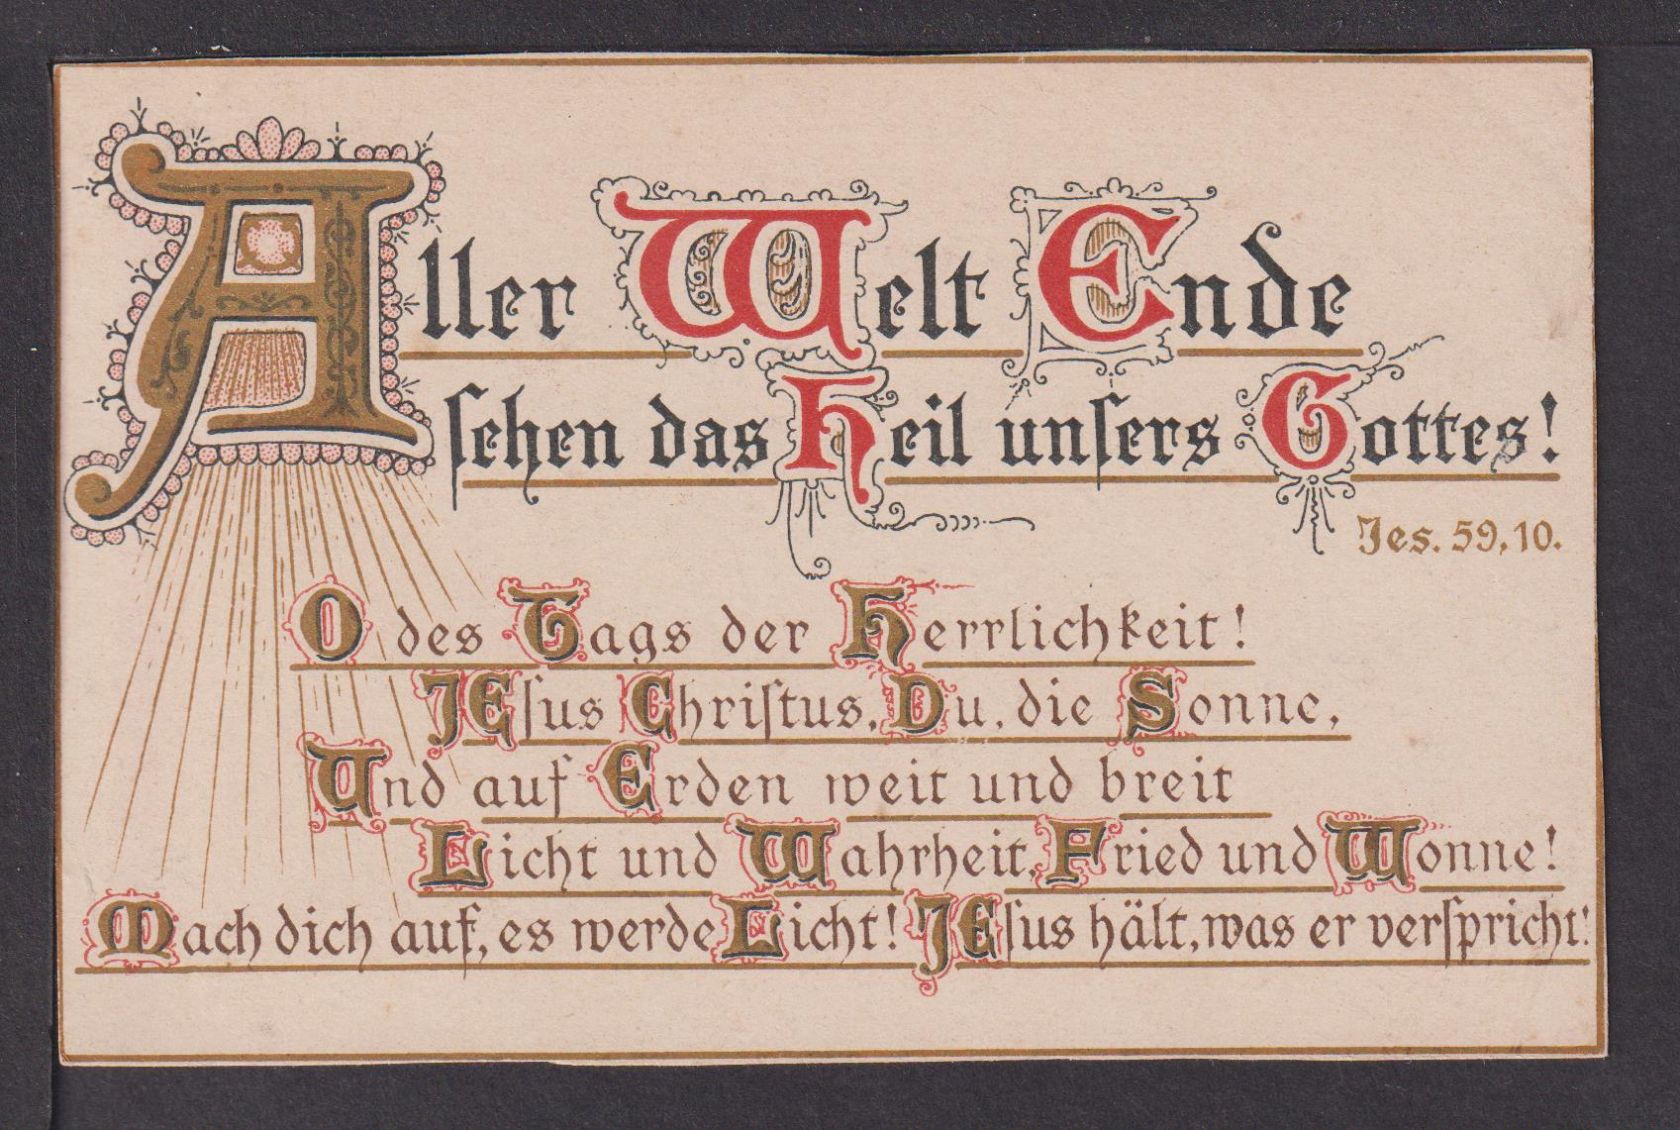 Aller Welt Ende
sehen das Heil unsers Gottes!
Jes. 59, 10.
O des Tags der Herrlichkeit!
JEsus Christus, Du, die Sonne,
Und auf Erden weit und breit
Licht und Wahrheit, Fried und Wonne!
Mach dich auf, es werde Licht! JEsus hält, was er verspricht!